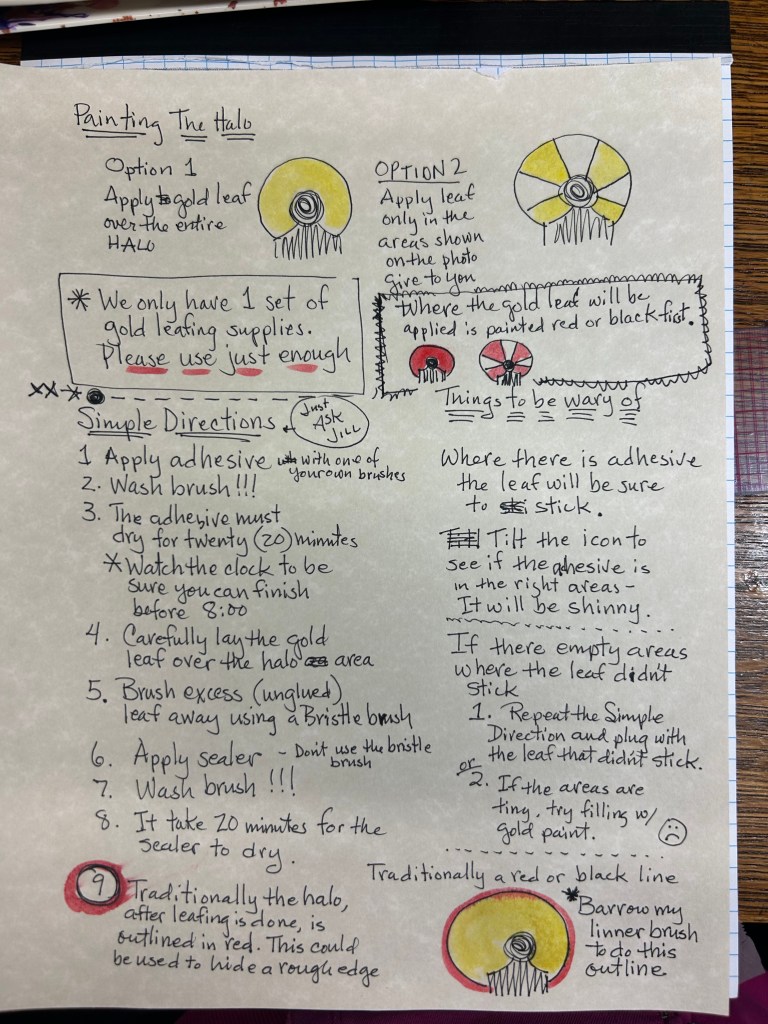 Painting The Halo
Option 1
Apply gold leaf
over the entire
HALO
OPTION 2
Apply leaf
only in the
areas shown
on the photo
give to you
* We only have 1 set of
gold leafing supplies.
Please use just enough
Where the gold leaf will be
applied is painted red or black first.
xx*
Simple Directions
Just
Ask
JILL
1 Apply adhesive with one of
your own brushes
2. Wash brush!!!
3. The adhesive must
dry for twenty (20) minutes
*Watch the clock to be
sure you can finish
before 8:00
4. Carefully lay the gold
leaf over the halo area
5. Brush excess (unglued)
leaf away using a Bristle brush
6. Apply sealer - Don't use the bristle
brush
7. Wash brush !!!
8. It take 20 minutes for the
sealer to dry.
9 Traditionally the halo,
after leafing is done, is
outlined in red. This could
be used to hide a rough edge
Things to be wary of
Where there is adhesive
the leaf will be sure
to stick.
Tilt the icon to
see if the adhesive is
in the right areas -
It will be shinny.
If there empty areas
where the leaf didn't
stick
1. Repeat the Simple
Direction and plug with
the leaf that didn't stick.
or
2. If the areas are
tiny, try filling w/
gold paint.
Traditionally a red or black line
*Barrow my
linner brush
to do this
outline